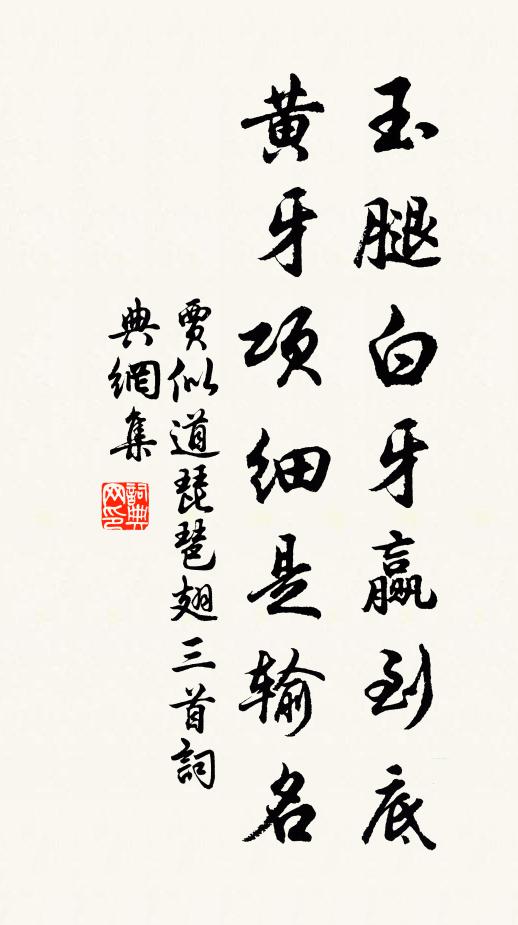 玉腿白牙贏到底
黄牙项细是输名
賈似道琵琶翅三首詞
典網集
詞典网印